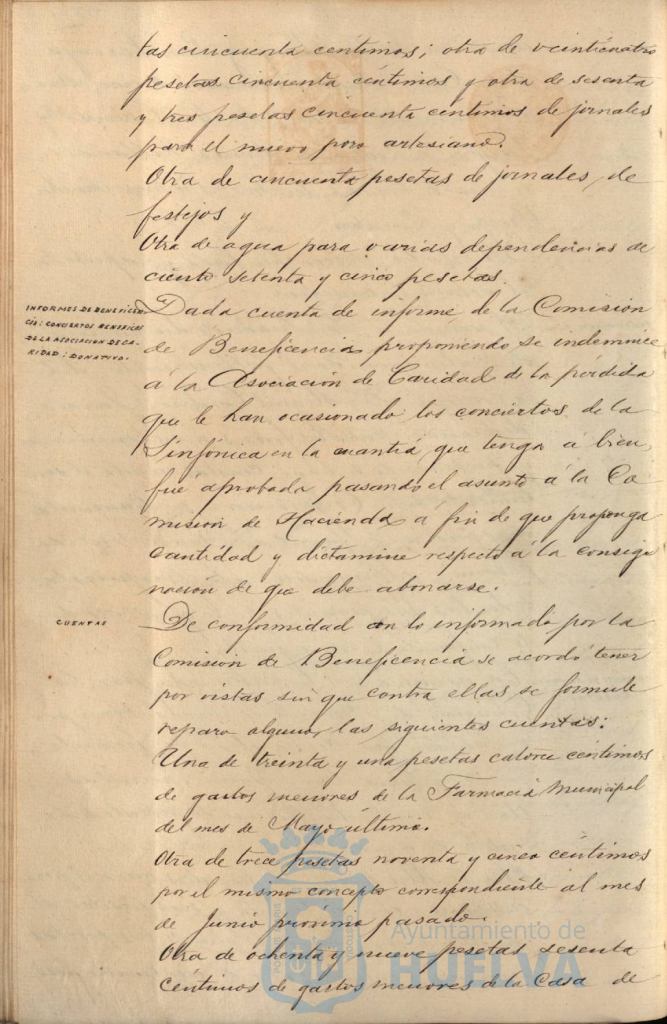 tas cincuenta centimos; otra de veinticuatro
pesetas cincuenta centimos y otra de sesenta
y tres pesetas cincuenta centimos de jornales
para el nuevo pozo artesiano.
Otra de cincuenta pesetas de jornales, de
festejos y
Otra de agua para varias dependencias de
ciento setenta y cinco pesetas.
INFORMES DE BENEFICEN-
CIA: CONCIERTOS BENEFICOS
DE LA ASOCIACION DE CA-
RIDAD: DONATIVO.
Dada cuenta de informe, de la Comision
de Beneficencia proponiendo se indemnice
á la Asociación de Caridad de la pérdida
que le han ocasionado los conciertos de la
Sinfónica en la cuantiá, que tenga á bien,
fué aprobada pasando el asunto á la Co
mision de Hacienda á fin de que proponga
cantidad y dictamine respecto á la consig
nación de que debe abonarse.
CUENTAS
De conformidad con lo informado por la
Comisión de Beneficencia se acordó tener
por vistas sin que contra ellas se formule
reparo alguno, las siguientes cuentas:
Una de treinta y una pesetas catorce centimos
de gastos menores de la Farmacia Municipal
del mes de Mayo último.
Otra de trece pesetas noventa y cinco céntimos
por el mismo concepto correspondiente al mes
de Junio próximo pasado.
Otra de ochenta y nueve pesetas sesenta
céntimos de gastos menores de la Casa de
Ayuntamiento de
HUELVA